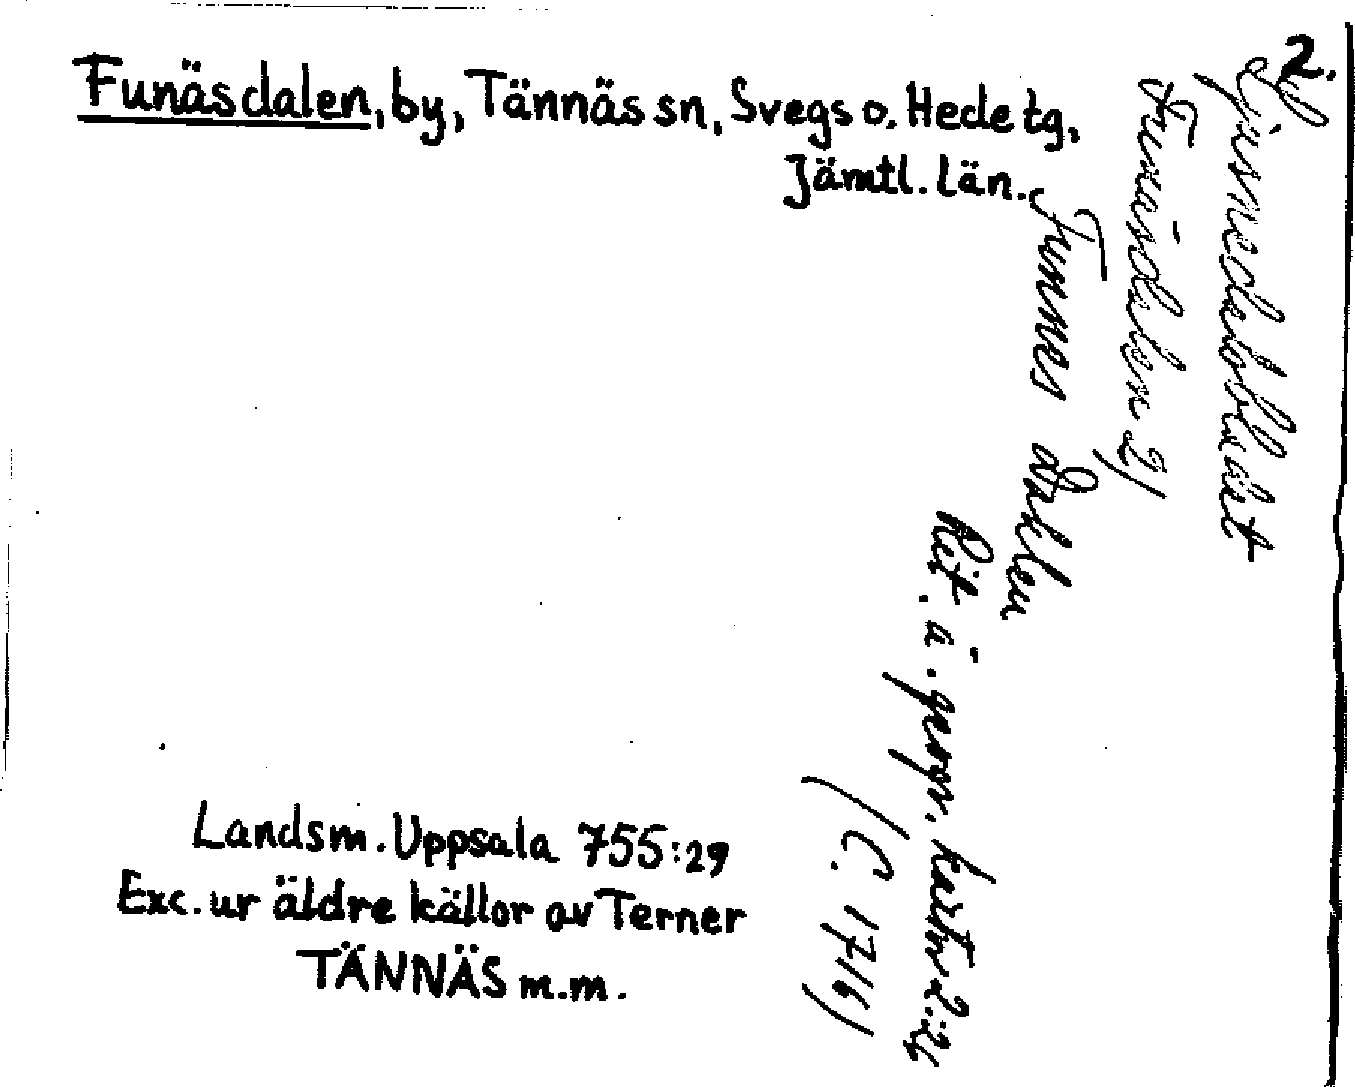 2.
Funäsdalen, by, Tännäs sn, Svegs o. Hede tg,
Jämtl. län.
Ljusnedelsbladet
Funäsdalen 2)
Funnes dahlen
Rit. ä. geogr. kartv 2:26
(C. 1716)
Landsm. Uppsala 755:29
Exc. ur äldre källor av Terner
TÄNNÄS m.m.